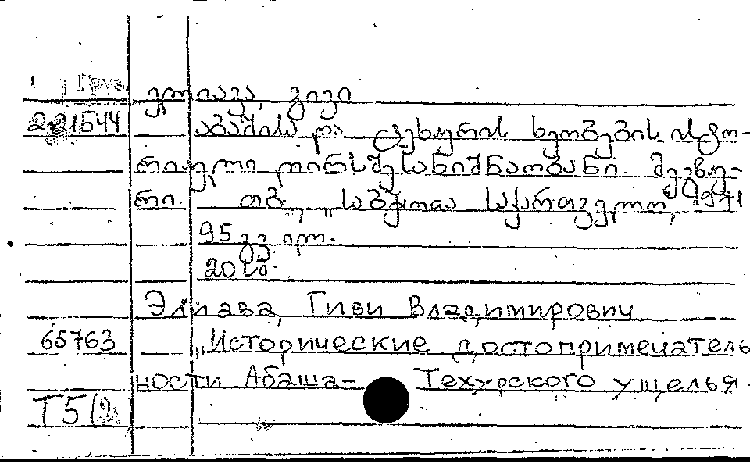 ელიავა, გივი
221544 აბაშისა და ტეხურის ხეობების ისტო-
რიული ღირსშესანიშნაობანი. მეგზუ-
რი. თბ., "საბჭოთა საქართველო", 1971
95გვ. ილ.
20სმ.
Элиава, Гиви Владимирович
65763 „Исторические достопримечатель
ности Абаша- Техурского ущелья.